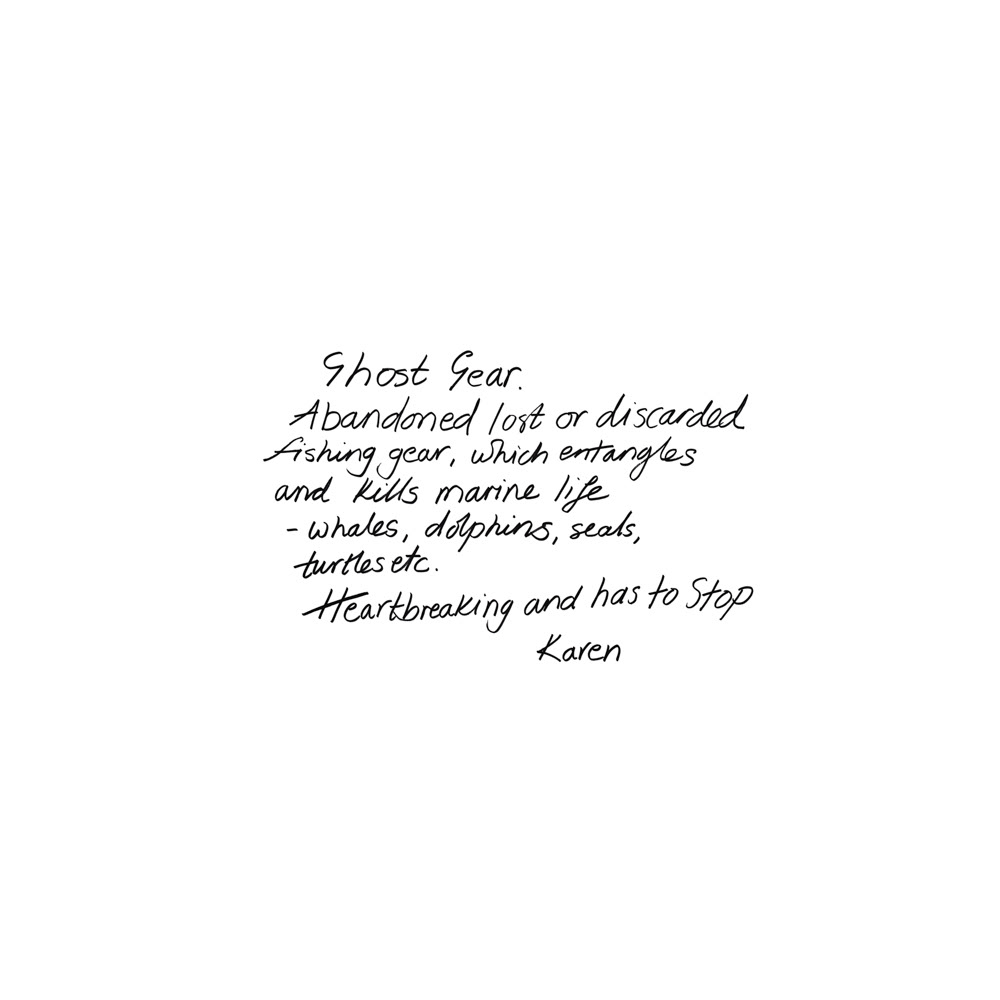 Ghost Gear.
Abandoned lost or discarded
fishing gear, which entangles
and kills marine life
- whales, dolphins, seals,
turtles etc.
Heartbreaking and has to Stop
Karen